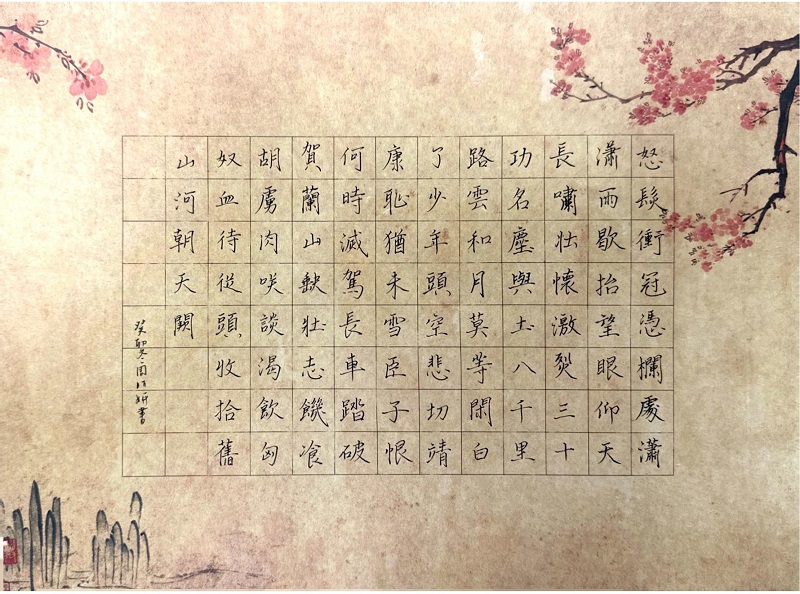 怒髮衝冠憑欄處瀟
瀟雨歇抬望眼仰天
長嘯壯懷激烈三十
功名塵與土八千里
路雲和月莫等閑白
了少年頭空悲切靖
康耻猶未雪臣子恨
何時滅駕長車踏破
賀蘭山缺壯志饑飡
胡虜肉咲談渴飲匈
奴血待從頭收拾舊
山河朝天闕
癸卯冬周妍書